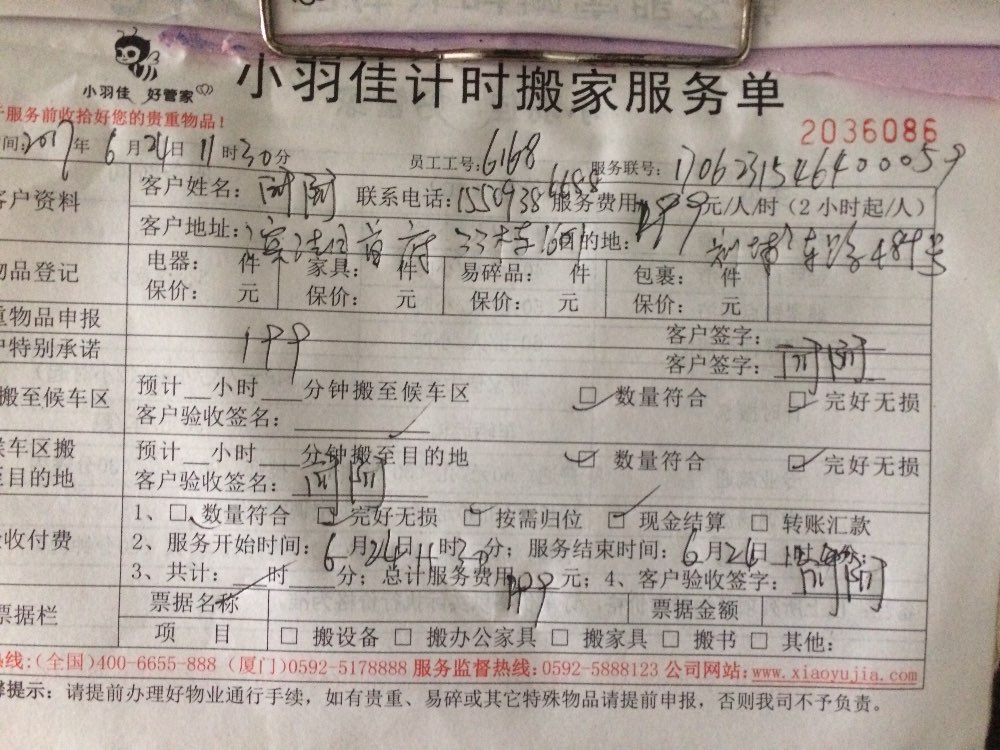 小羽佳 好管家
小羽佳计时搬家服务单
服务前收拾好您的贵重物品!
2036086
间:2017年6月24日11时30分 员工工号:6168 服务联号:17062315464000059
客户资料 客户姓名: 联系电话:15509386688 服务费用199元/人/时(2小时起/人)
客户地址: 首府33栋 目的地: 车路489号
物品登记 电器: 件 家具: 件 易碎品: 件 包裹: 件
保价: 元 保价: 元 保价: 元 保价: 元
重物品申报 客户签字:
户特别承诺 199 客户签字:
搬至候车区 预计__小时___分钟搬至候车区 □ 数量符合 □ 完好无损
客户验收签名:
候车区搬至目的地 预计__小时___分钟搬至目的地 □ 数量符合 □ 完好无损
客户验收签名:
验收付费 1、□ 数量符合 □ 完好无损 □ 按需归位 □ 现金结算 □ 转账汇款
2、服务开始时间:6月24日11时30分;服务结束时间:6月24日 时 分;
3、共计:___时___分;总计服务费用199元;4、客户验收签字:
票据栏 票据名称 票据金额
项 目 □ 搬设备 □ 搬办公家具 □ 搬家具 □ 搬书 □ 其他:
热线:(全国)400-6655-888 (厦门)0592-5178888 服务监督热线:0592-5888123 公司网站:www.xiaoyujia.com
提示:请提前办理好物业通行手续,如有贵重、易碎或其它特殊物品请提前申报,否则我司不予负责。